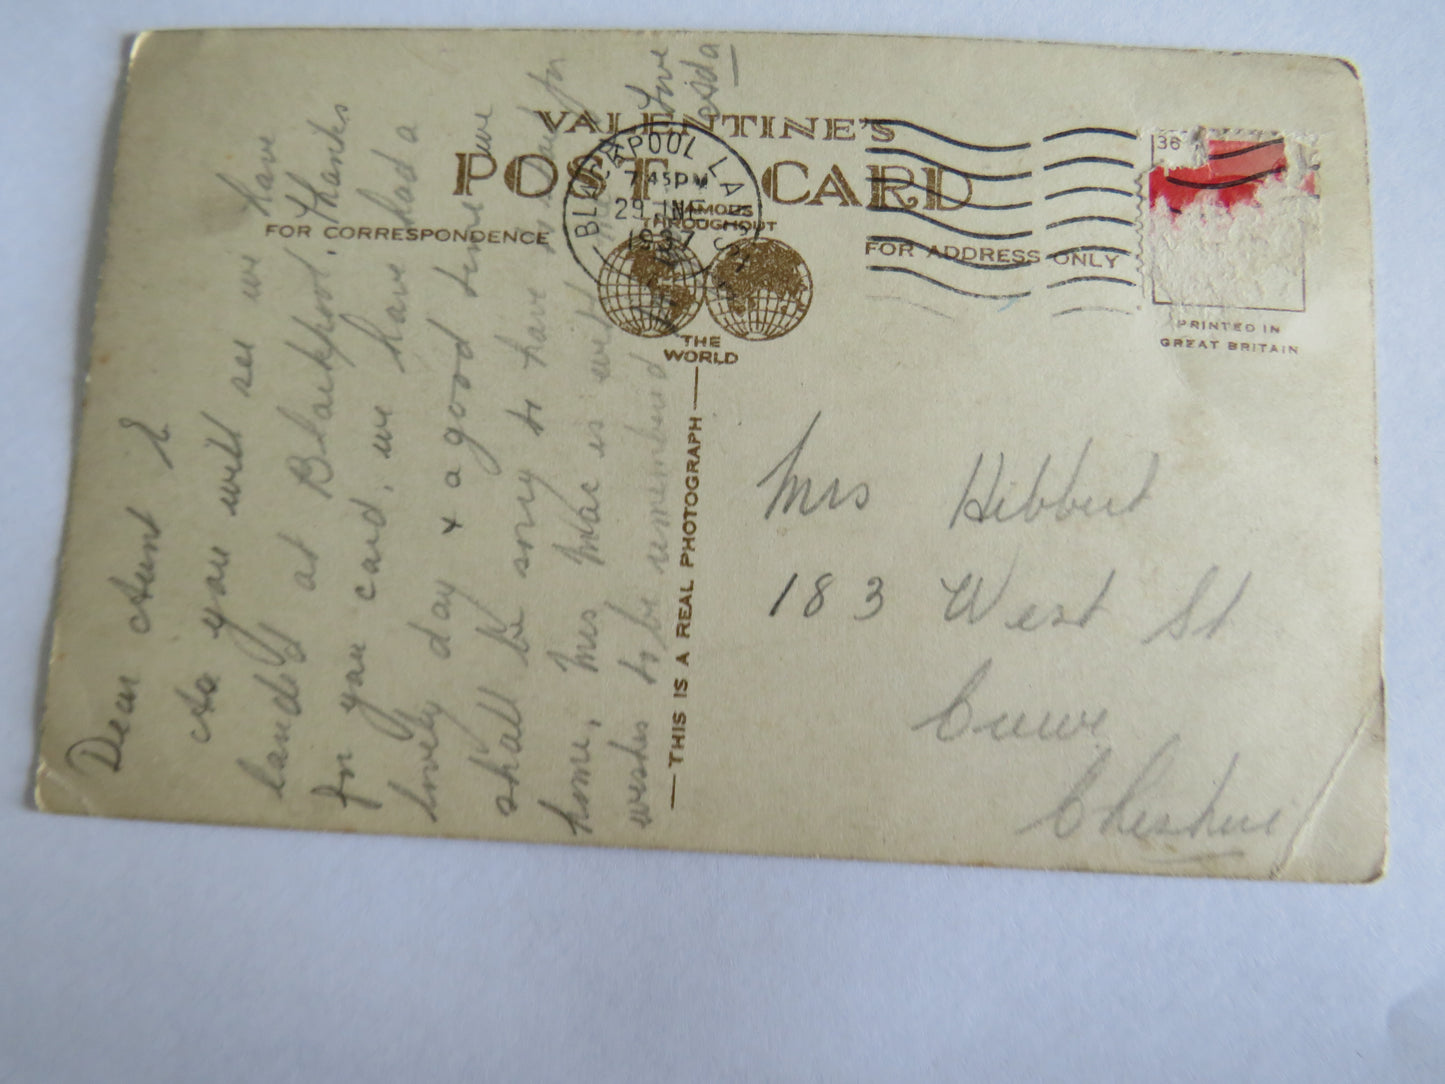 VALENTINE'S
POST CARD
FAMOUS
THROUGHOUT
THE
WORLD
FOR CORRESPONDENCE
FOR ADDRESS ONLY
BLACKPOOL LANCS
7 45 PM
29 JNE
1937
36
PRINTED IN
GREAT BRITAIN
THIS IS A REAL PHOTOGRAPH
Dear Aunt E
As you will see we have
landed at Blackpool. Thanks
for your card, we have had a
lovely day + a good time we
shall be sorry to have to return
home, Mrs Mac is well
wishes to be remembered
Love
Mrs Hibbert
183 West St
Crewe
Cheshire